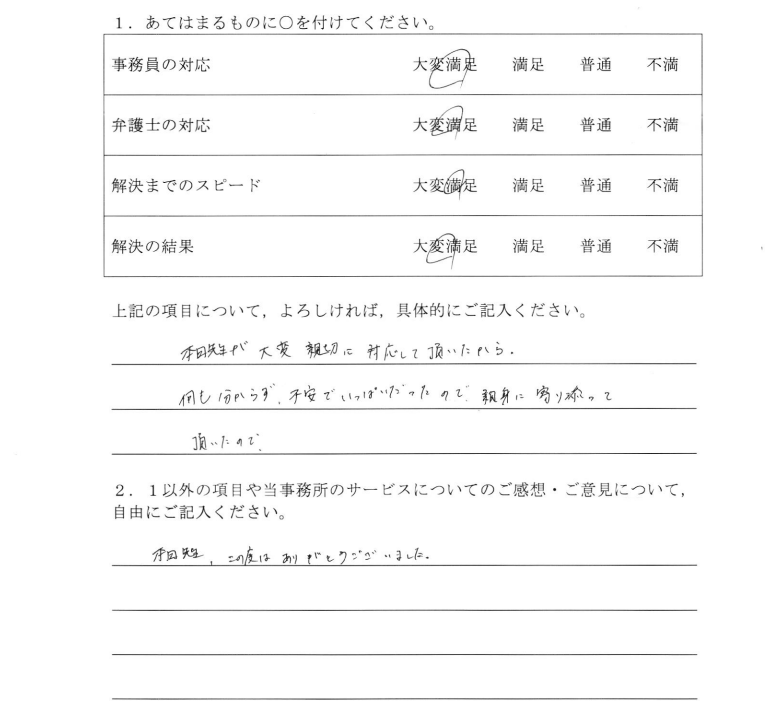 1．あてはまるものに○を付けてください。
事務員の対応 大変満足 満足 普通 不満
弁護士の対応 大変満足 満足 普通 不満
解決までのスピード 大変満足 満足 普通 不満
解決の結果 大変満足 満足 普通 不満
上記の項目について，よろしければ，具体的にご記入ください。
本田先生が 大変 親切に 対応して 頂いたから.
何も 分からず、不安で いっぱいだったので、親身に 寄り添って
頂いたので、
2．1以外の項目や当事務所のサービスについてのご感想・ご意見について，
自由にご記入ください。
本田先生, この度は ありがとうございました.